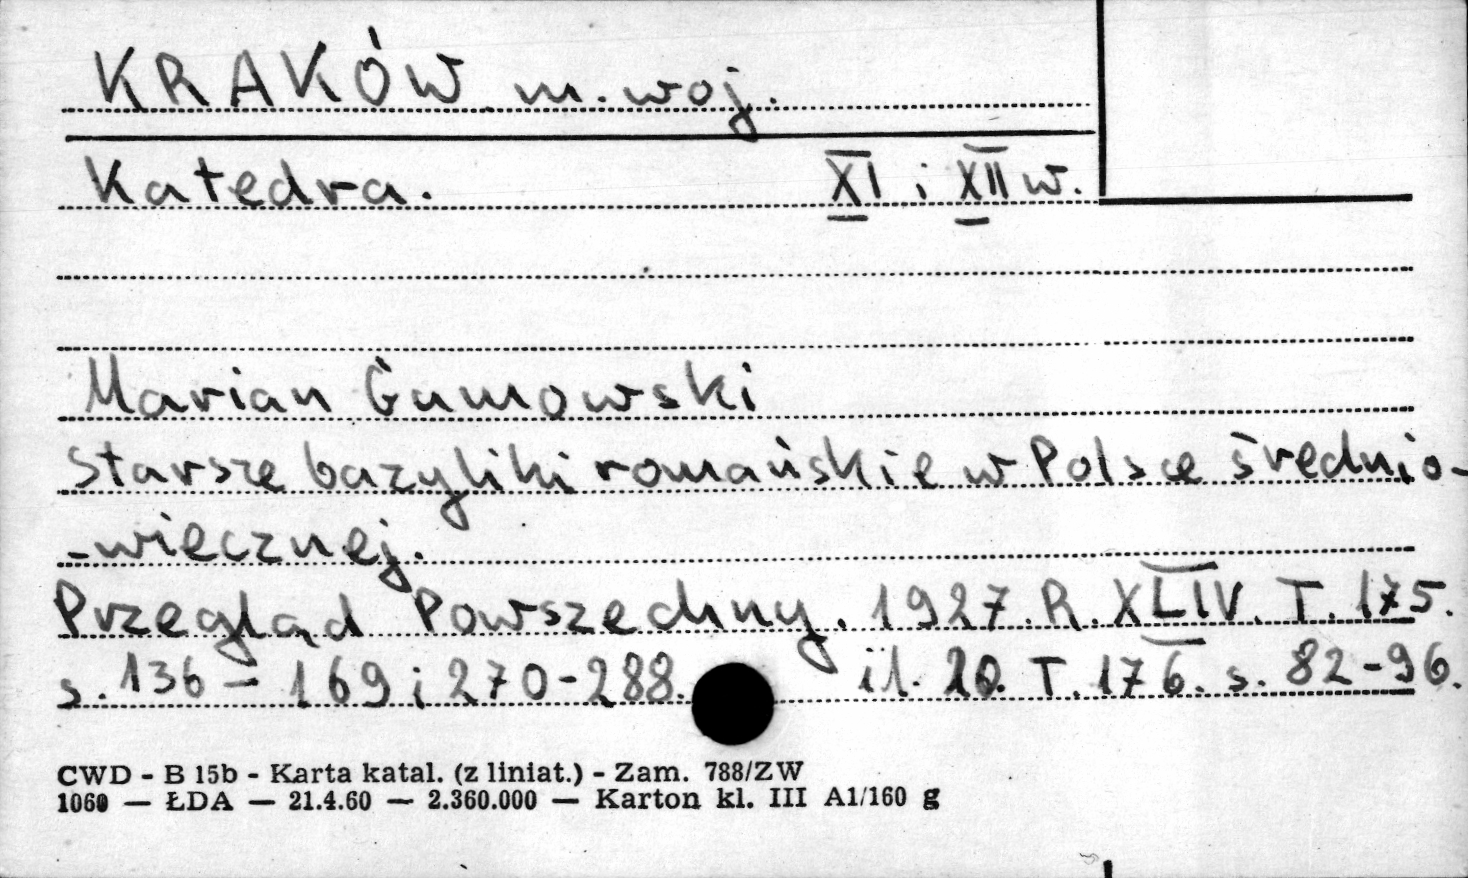 KRAKÓW m. woj.
Katedra. XI i XII w.
Marian Gumowski
Starsze bazyliki romańskie w Polsce średnio-
-wiecznej.
Przegląd Powszechny. 1927. R. XLIV. T. 175.
s. 136 - 169 i 270-288. il. 20. T. 176. s. 82-96.
CWD - B 15b - Karta katal. (z liniat.) - Zam. 788/ZW
1060 — ŁDA — 21.4.60 — 2.360.000 — Karton kl. III A1/160 g